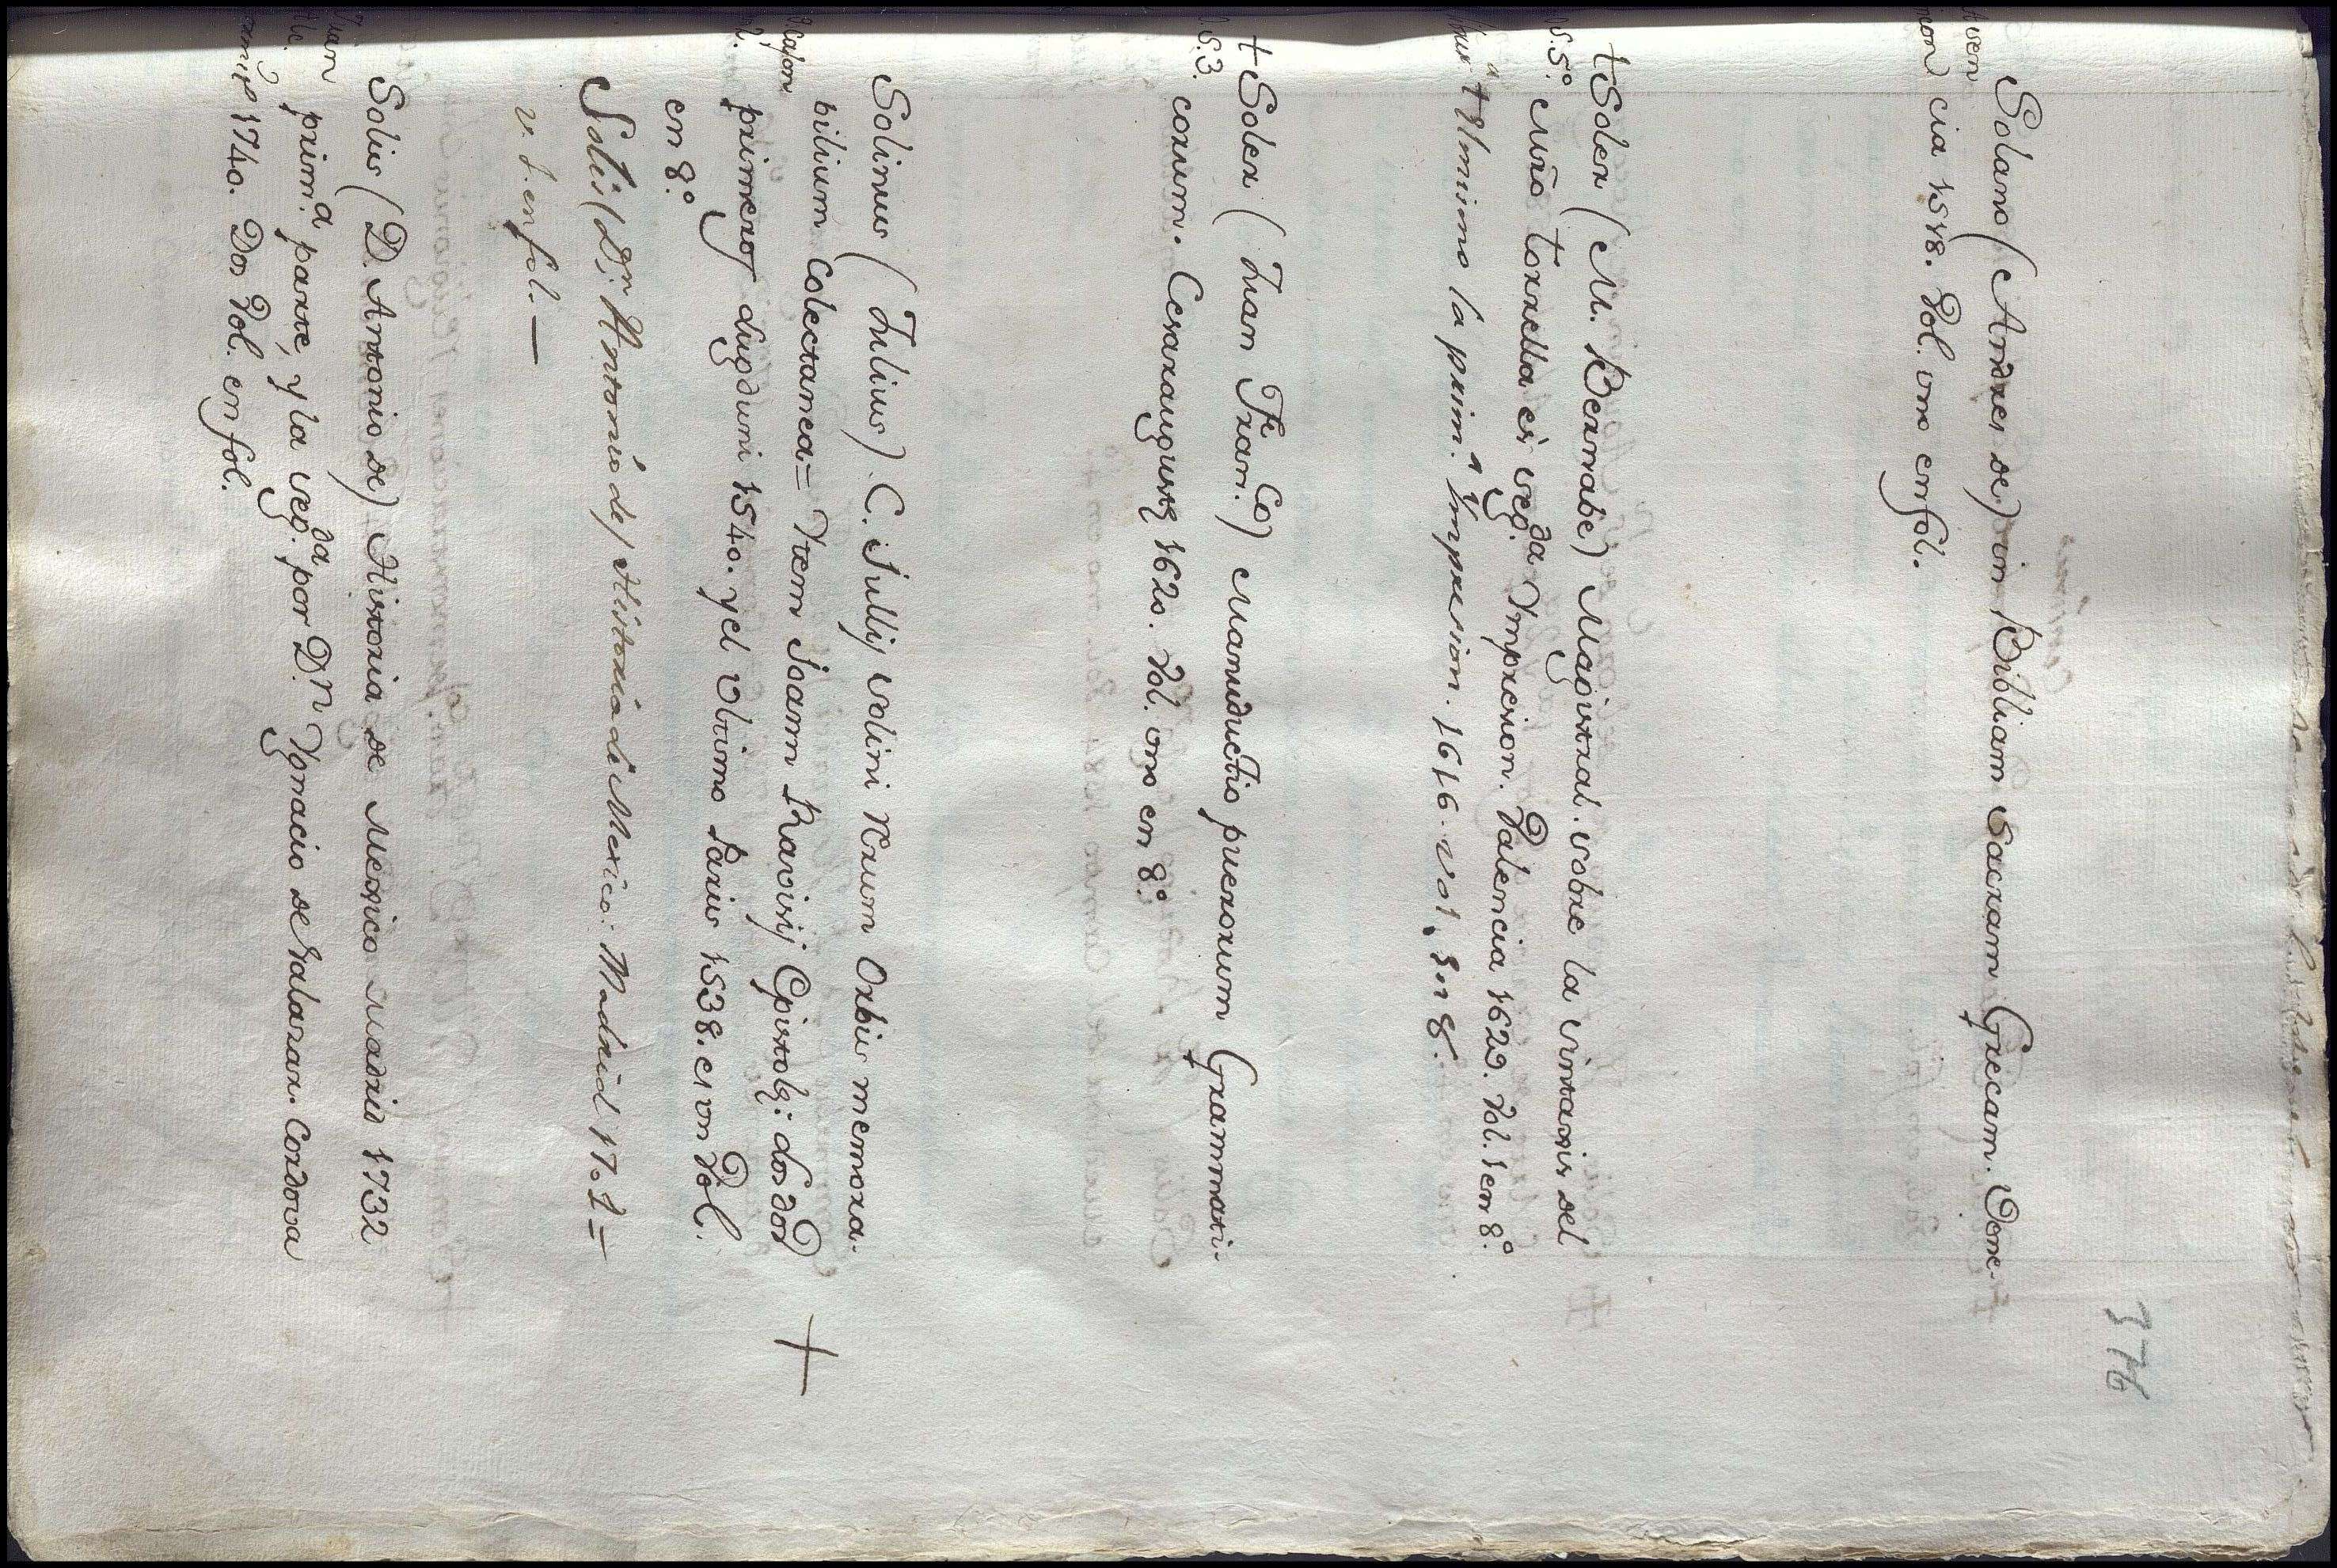 376
Solano (Andres de) in Bibliam Sacram Grecam. Vene-
cia 1518. Vol. uno en fol.
+ Soler (M. Bernabe) Magistral sobre la sintaxis del
Mro Torrella es seg.da Ympresion. Valencia 1623. Vol. 1 en 8.º
+ El mismo la prim.a Ympresion. 1616. vol. 1 en 8.
+ Soler (Juan Fran.co) Manuductio puerorum Grammati-
V.S.3. corum. Cesaraugustę 1620. Vol. uno en 8.º
Solinus (Julius) C. Jullij Solini Rerum Orbis memora-
bilium Colectanea = Ytem Joann Ravisij Epistolę: los dos
primeros Lugduni 1540. y el Vltimo Paris 1538. es un Vol.
en 8.º
+
Solis (D.n Antonio de) Historia de Mexico: Madrid 1704 =
v. 1. en fol. —
Solis (D. Antonio de) Historia de Mexico Madrid 1732
prim.a parte, y la seg.da por D.n Ygnacio de Salazar. Cordova
1740. Dos Vol. en fol.